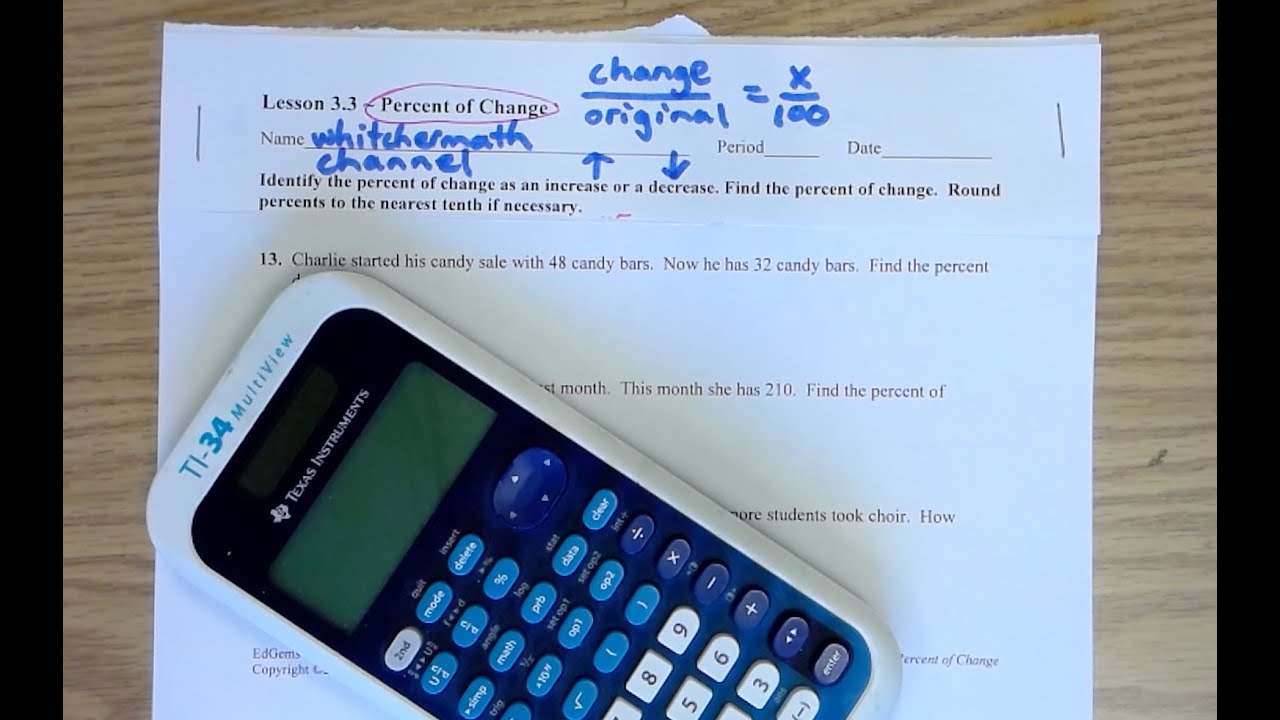 change
x
Lesson 3.3 – Percent of Change
=
original
100
Name whitchermath
Period______ Date____________
channel
↑ ↓
Identify the percent of change as an increase or a decrease. Find the percent of change. Round
percents to the nearest tenth if necessary.
13. Charlie started his candy sale with 48 candy bars. Now he has 32 candy bars. Find the percent
month. This month she has 210. Find the percent of
more students took choir. How
TI-34 MultiView
TEXAS INSTRUMENTS
clear
int÷
÷
insert
delete
stat
data
×
quit
mode
%
log
set op2
op2
−
2nd
n/d
prb
set op1
)
+
angle
math
op1
9
enter
U n/d
×10ⁿ
(
6
simp
trig
√
8
3
5
(−)
EdGems
Copyright
Percent of Change